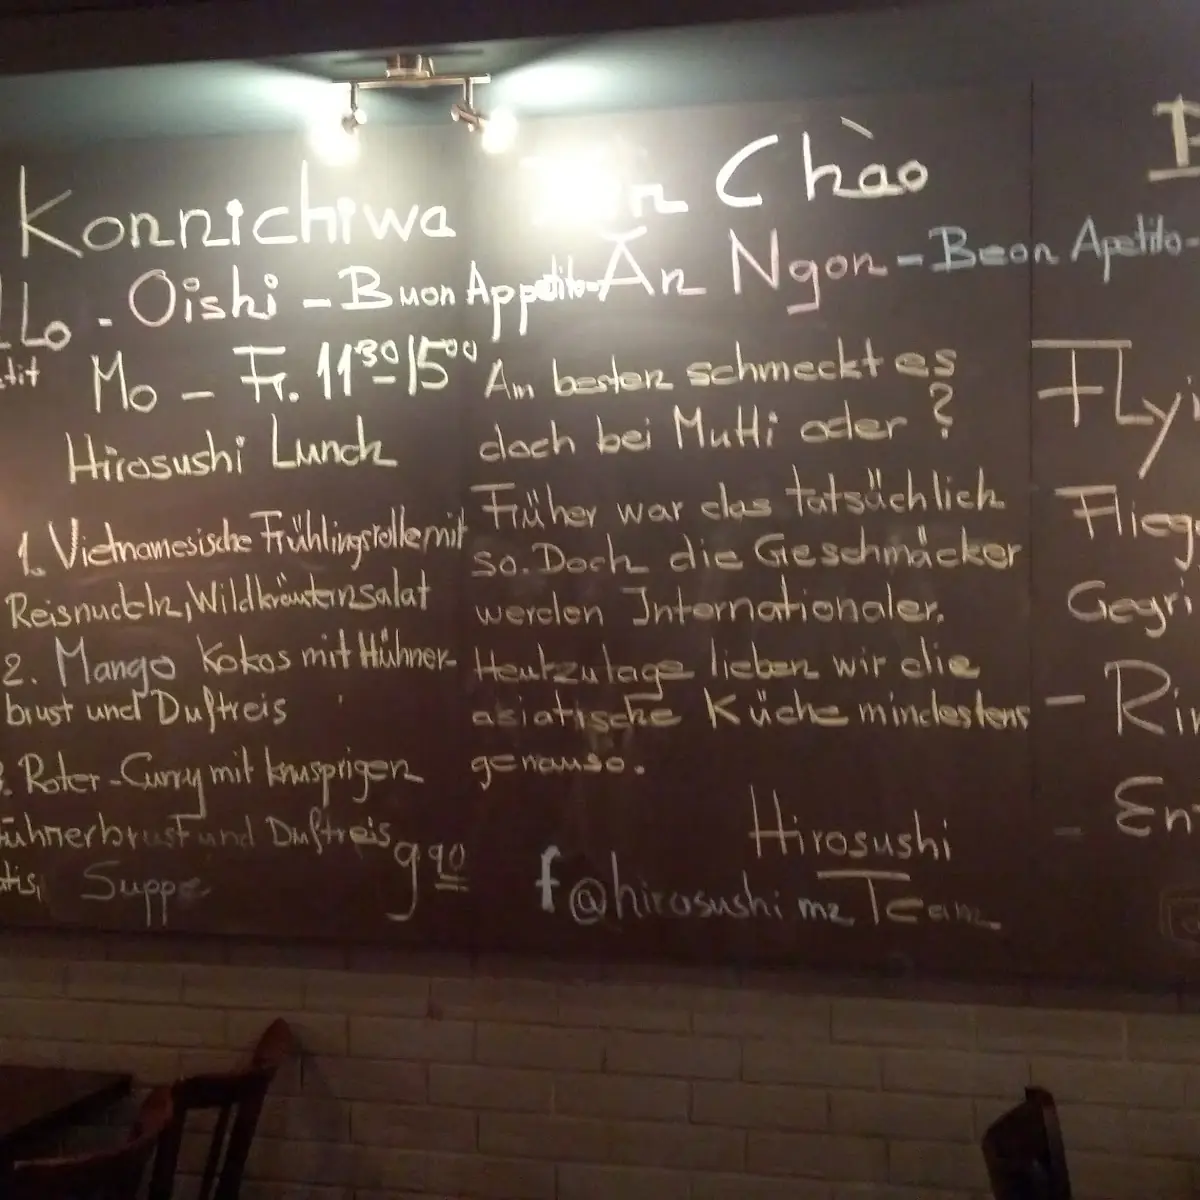 Konnichiwa
Chào
Lo - Oishi - Buon Appetito - Ăn Ngon - Beon Apetito -
tit
Mo - Fr. 11³⁰-15⁰⁰
Hirosushi Lunch
1. Vietnamesische Frühlingsrolle mit
Reisnudeln, Wildkräutern salat
2. Mango Kokos mit Hühner-
brust und Duftreis
3. Roter-Curry mit knusprigen
ühnerbrust und Duftreis
9⁹⁰
atis, Suppe
Am besten schmeckt es
doch bei Mutti oder ?
Früher war das tatsächlich
so. Doch die Geschmäcker
werden Internationaler.
Heutzutage lieben wir die
asiatische Küche mindestens
genauso.
Hirosushi
f @hirosushi mz Team
Flyi
Flieg
Gegri
- Rin
- En